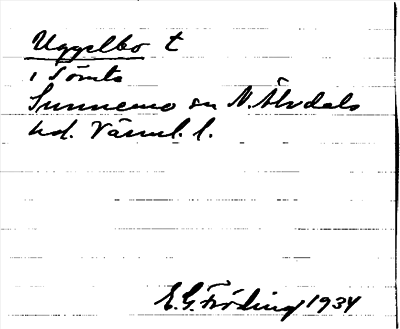 Uggelbo t
i Tömta
Sunnemo sn N. Älvdals
hd. Värml. l.
E. G. Fröding 1934